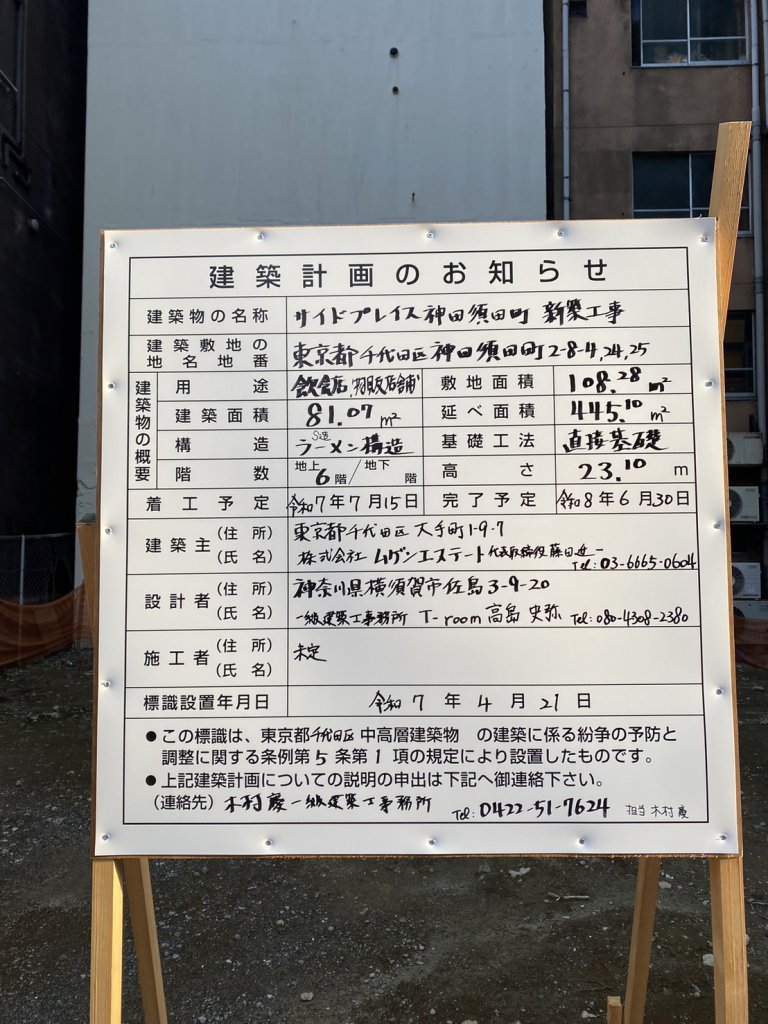 建築計画のお知らせ
建築物の名称 サイドプレイス神田須田町 新築工事
建築敷地の地名地番 東京都千代田区神田須田町2-8-4,24,25
建築物の概要
用途 飲食店,物販店舗 敷地面積 108.28㎡
建築面積 81.07㎡ 延べ面積 445.10㎡
構造 S造 ラーメン構造 基礎工法 直接基礎
階数 地上6階/地下 階 高さ 23.10m
着工予定 令和7年7月15日 完了予定 令和8年6月30日
建築主(住所) 東京都千代田区大手町1-9-7
(氏名) 株式会社ムゲンエステート 代表取締役 藤田進一 Tel:03-6665-0604
設計者(住所) 神奈川県横須賀市佐島3-9-20
(氏名) 一級建築工事務所 T-room 高島 史弥 Tel:080-4308-2380
施工者(住所)(氏名) 未定
標識設置年月日 令和7年4月21日
●この標識は、東京都千代田区中高層建築物 の建築に係る紛争の予防と
調整に関する条例第5条第1項の規定により設置したものです。
●上記建築計画についての説明の申出は下記へ御連絡下さい。
(連絡先)木村慶一級建築工事務所 Tel:0422-51-7624 担当 木村 慶